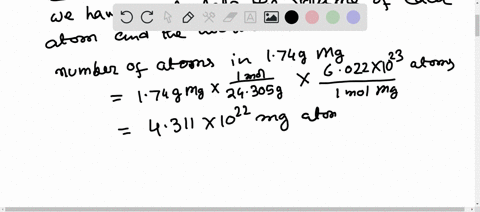 we hav
atom and the
number of atoms in 1.74g Mg
= 1.74g Mg × 1mol/24.305g × 6.022×10²³ atoms/1 mol Mg
= 4.311 ×10²² mg atom